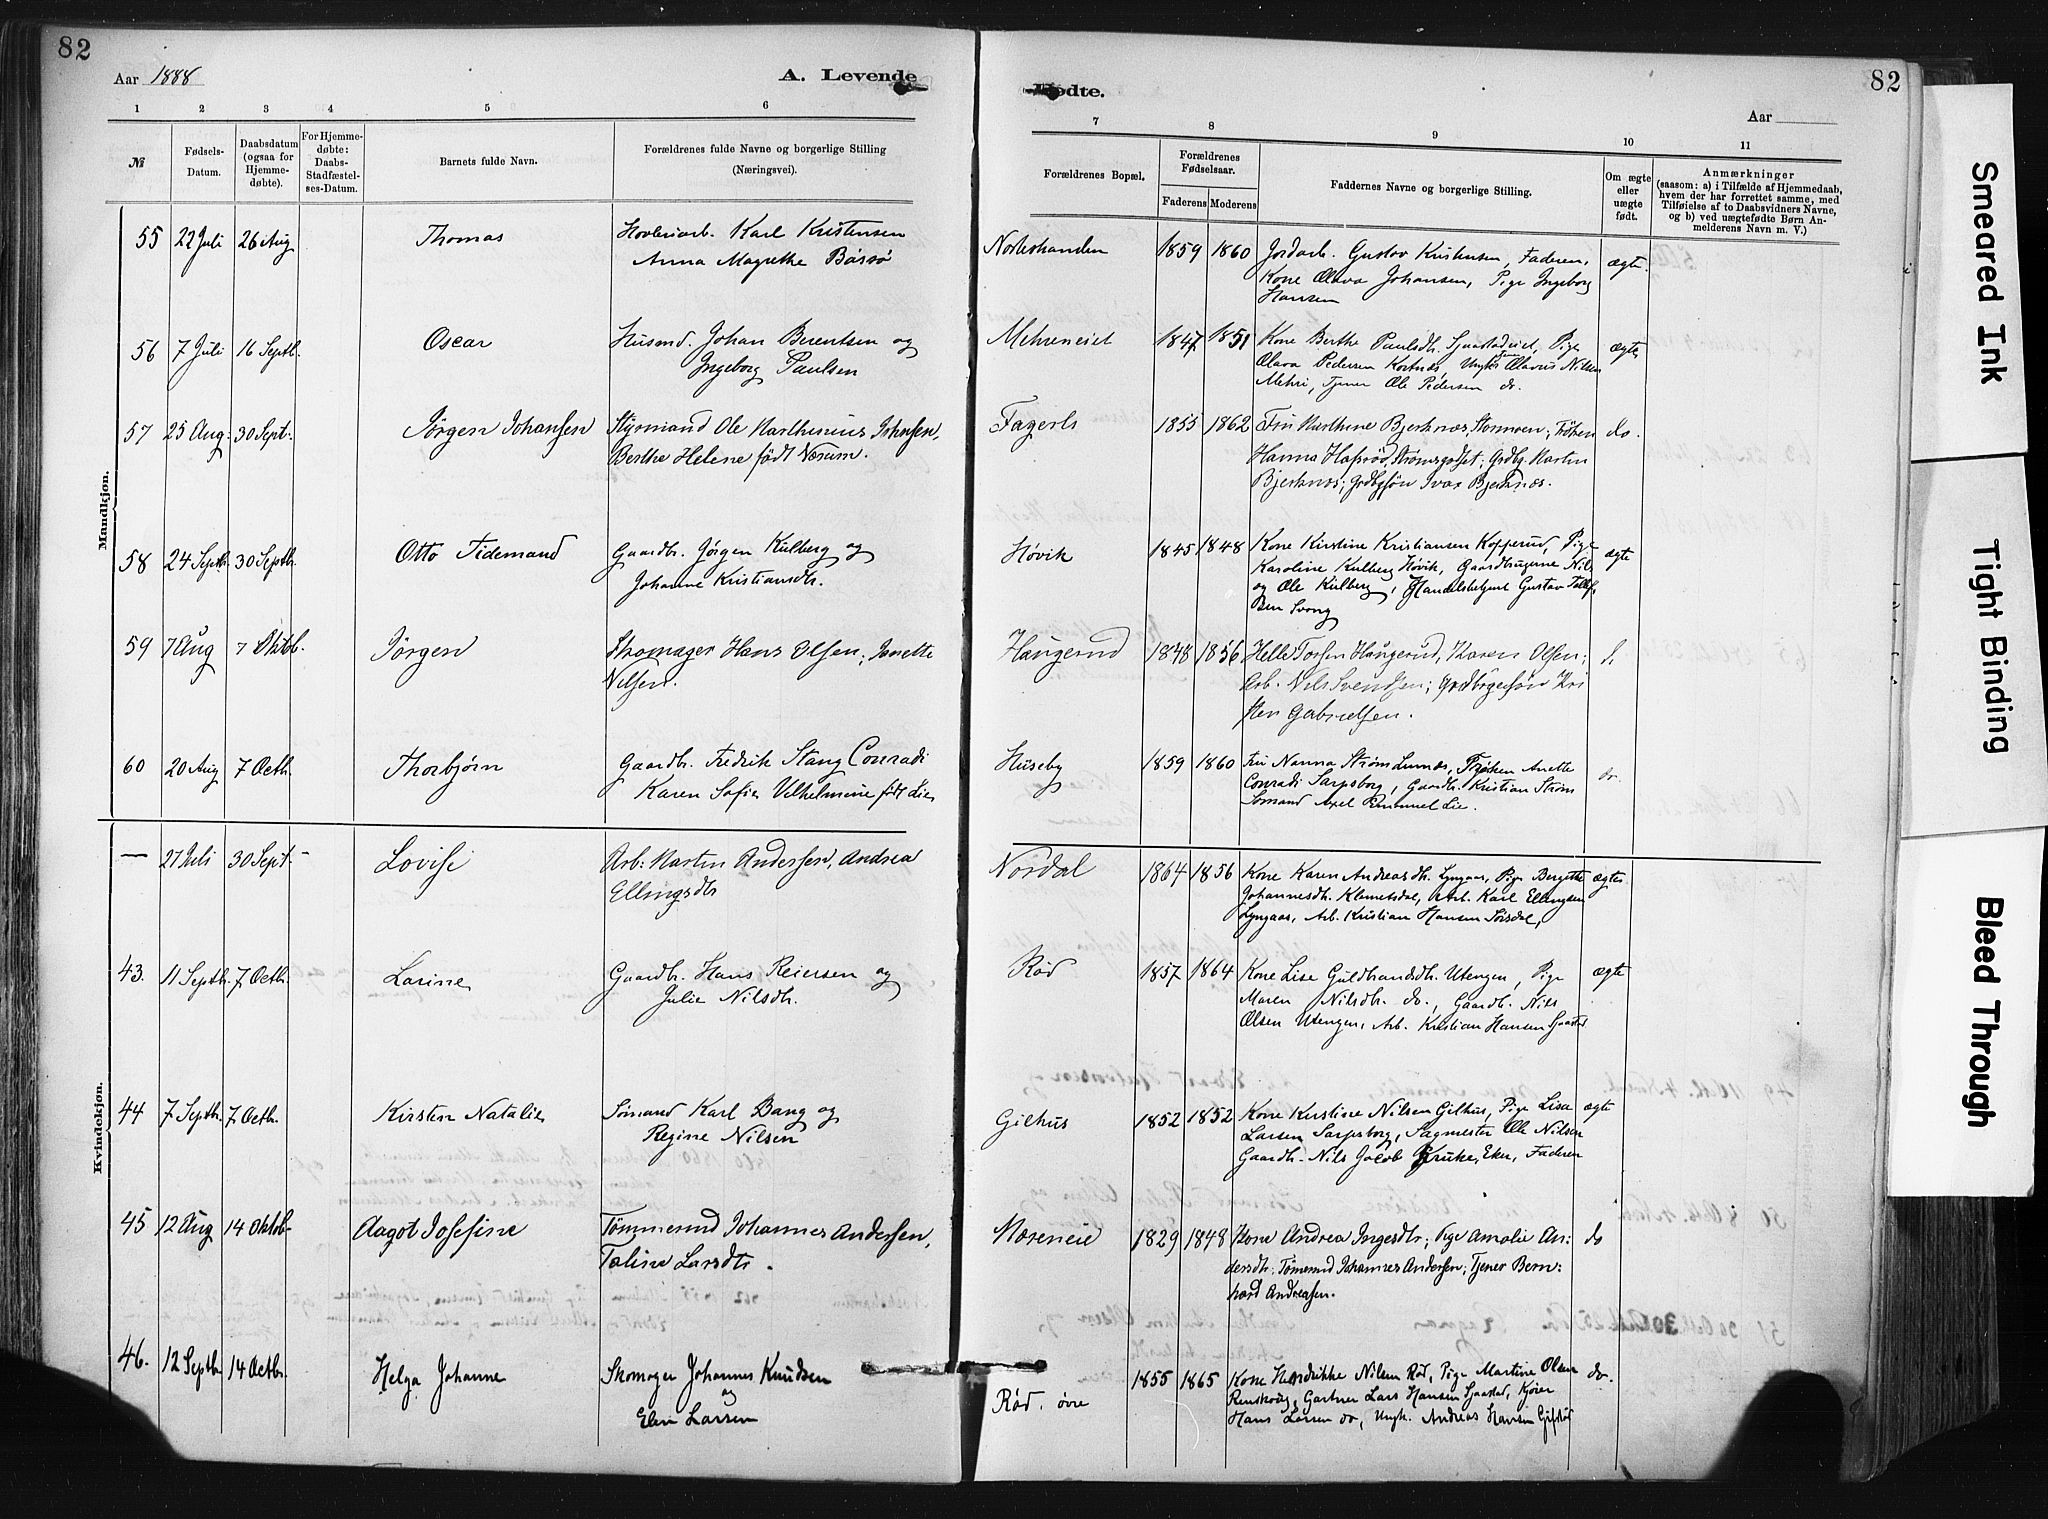 82
Aar 1888
A. Levende
1 2 3 4 5 6
№
Fødsels-
Datum.
Daabsdatum
(ogsaa for
Hjemme-
døbte).
For Hjemme-
døbte:
Daabs-
Stadfæstel-
ses-Datum.
Barnets fulde Navn.
Forældrenes fulde Navne og borgerlige Stilling
(Næringsvei).
Mandkjøn.
55 22 Juli 26 Aug Thomas Karl Kristensen
Anna Magrethe
56 7 Juli 16 Septb. Oscar Husmd. Johan Berentsen og
Ingeborg Paulsen
57 25 Aug. 30 Sept. Jørgen Johansen Styrmand Ole Marthinius Johansen,
Berthe Helene født Nærum.
58 24 Septb. 30 Septb. Otto Tidemand Gaardbr. Jørgen Kulberg og
Johanne Kristiansdtr.
59 7 Aug 7 Oktob. Jørgen Skomager Hans Olsen; Janette
Nilsen.
60 20 Aug 7 Octb. Thorbjørn Gaardbr. Fredrik Stang Conradi
Karen Sofie Vilhelmine født Lie
Kvindekjøn.
— 27 Juli 30 Sept. — Lovise Arb: Martin Andersen, Andrea
Ellingsdtr
43. 11 Septb. 7 Octb. Larine Gaardbr. Hans Reiersen og
Julie Nilsdtr.
44 7 Septb. 7 Octb. Kirsten Natalie Sømand Karl Bang og
Regine Nilsen
45 12 Aug 14 Oktob. Aagot Josefine Tømmermd Johannes Andersen,
Taline Larsdtr.
46. 12 Septb 14 Octbr. Helga Johanne Skomager Johannes Knudsen
og
Elen Larsen
82
Fødte.
Aar
7 8 9 10 11
Forældrenes Bopæl.
Forældrenes
Fødselsaar.
Faderens Moderens
Faddernes Navne og borgerlige Stilling.
Om ægte
eller
uægte
født.
Anmærkninger
(saasom: a) i Tilfælde af Hjemmedaab,
hvem der har forrettet samme, med
Tilføielse af to Daabsvidners Navne,
og b) ved uægtefødte Børn An-
melderens Navn m. V.)
Nordstranden 1859 1860 Jordarb. Gustav Kristensen, Faderen, ægte.
Kone Olava Johansen, Pige Ingeborg
Hansen
Mehreneiet 1847 1851 Kone Berthe Paulsdtr. Sjaastadeiet, Pige ægte
Olava Pedersen Kortnæs, Olavus Nilsen
Mehri, Tjener Ole Pedersen do.
1855 1862 Fru Marthine Bjerknæs, Stormoen; Frøken do.
Hanna Hafsrød, Strømsgodset; Grdbr. Martin
Bjerknæs; Grdbrsøn Ivar Bjerknæs.
Høvik 1845 1848 Kone Kirstine Kristiansen Kopperud, Pige ægte
Karoline Kulberg Høvik, Gaardbrugerne Nils
og Ole Kulberg, Handelsbetjent Gustav
Haugerud 1848 1856 Helle Torsen Haugerud, Karen Olsen;
Arb. Nils Svendsen; Kri
sten Gabrielsen.
Huseby 1859 1860 Fru Nanna Strøm Lumnæs, Frøken Anette do.
Conradi Sarpsborg, Gaardbr. Kristian Strøm
Sømand Axel Emmuel Lie.
Nordal 1864 1856 Kone Karen Andreasdtr. Lyngaas, Pige Bergitte ægte
Johannesdtr. Klemetsdal, Arb. Karl Ellingsen
Lyngaas, Arb. Kristian Hansen Sørsdal,
Rød 1857 1864 Kone Lise Guldbrandsdtr. Utengen, Pige ægte
Maren Nilsdtr. do., Gaardbr. Nils
Olsen Utengen, Arb. Kristian Hansen Sjaastad
Gilhus 1852 1852 Kone Kirstine Nilsen Gilhus, Pige Lisa ægte
Larsen Sarpsborg, Sagmester Ole Nilsen
Gaardbr. Nils Jacob Kruke, Eker, Faderen
Møreneie 1829 1848 Kone Andrea Ingesdtr; Pige Amalie An: do
dersdtr. Tømermd Johannes Andersen; Tjener Bern:
hard Andreasen.
Rød. øvre 1855 1865 Kone Hendrikke Nilsen Rød, Pige Martine Olsen do.
Renskoug, Gartner Lars Hansen Sjaastad, Kjører
Hans Larsen do, Ungk. Andreas Hansen
Smeared Ink
Tight Binding
Bleed Through